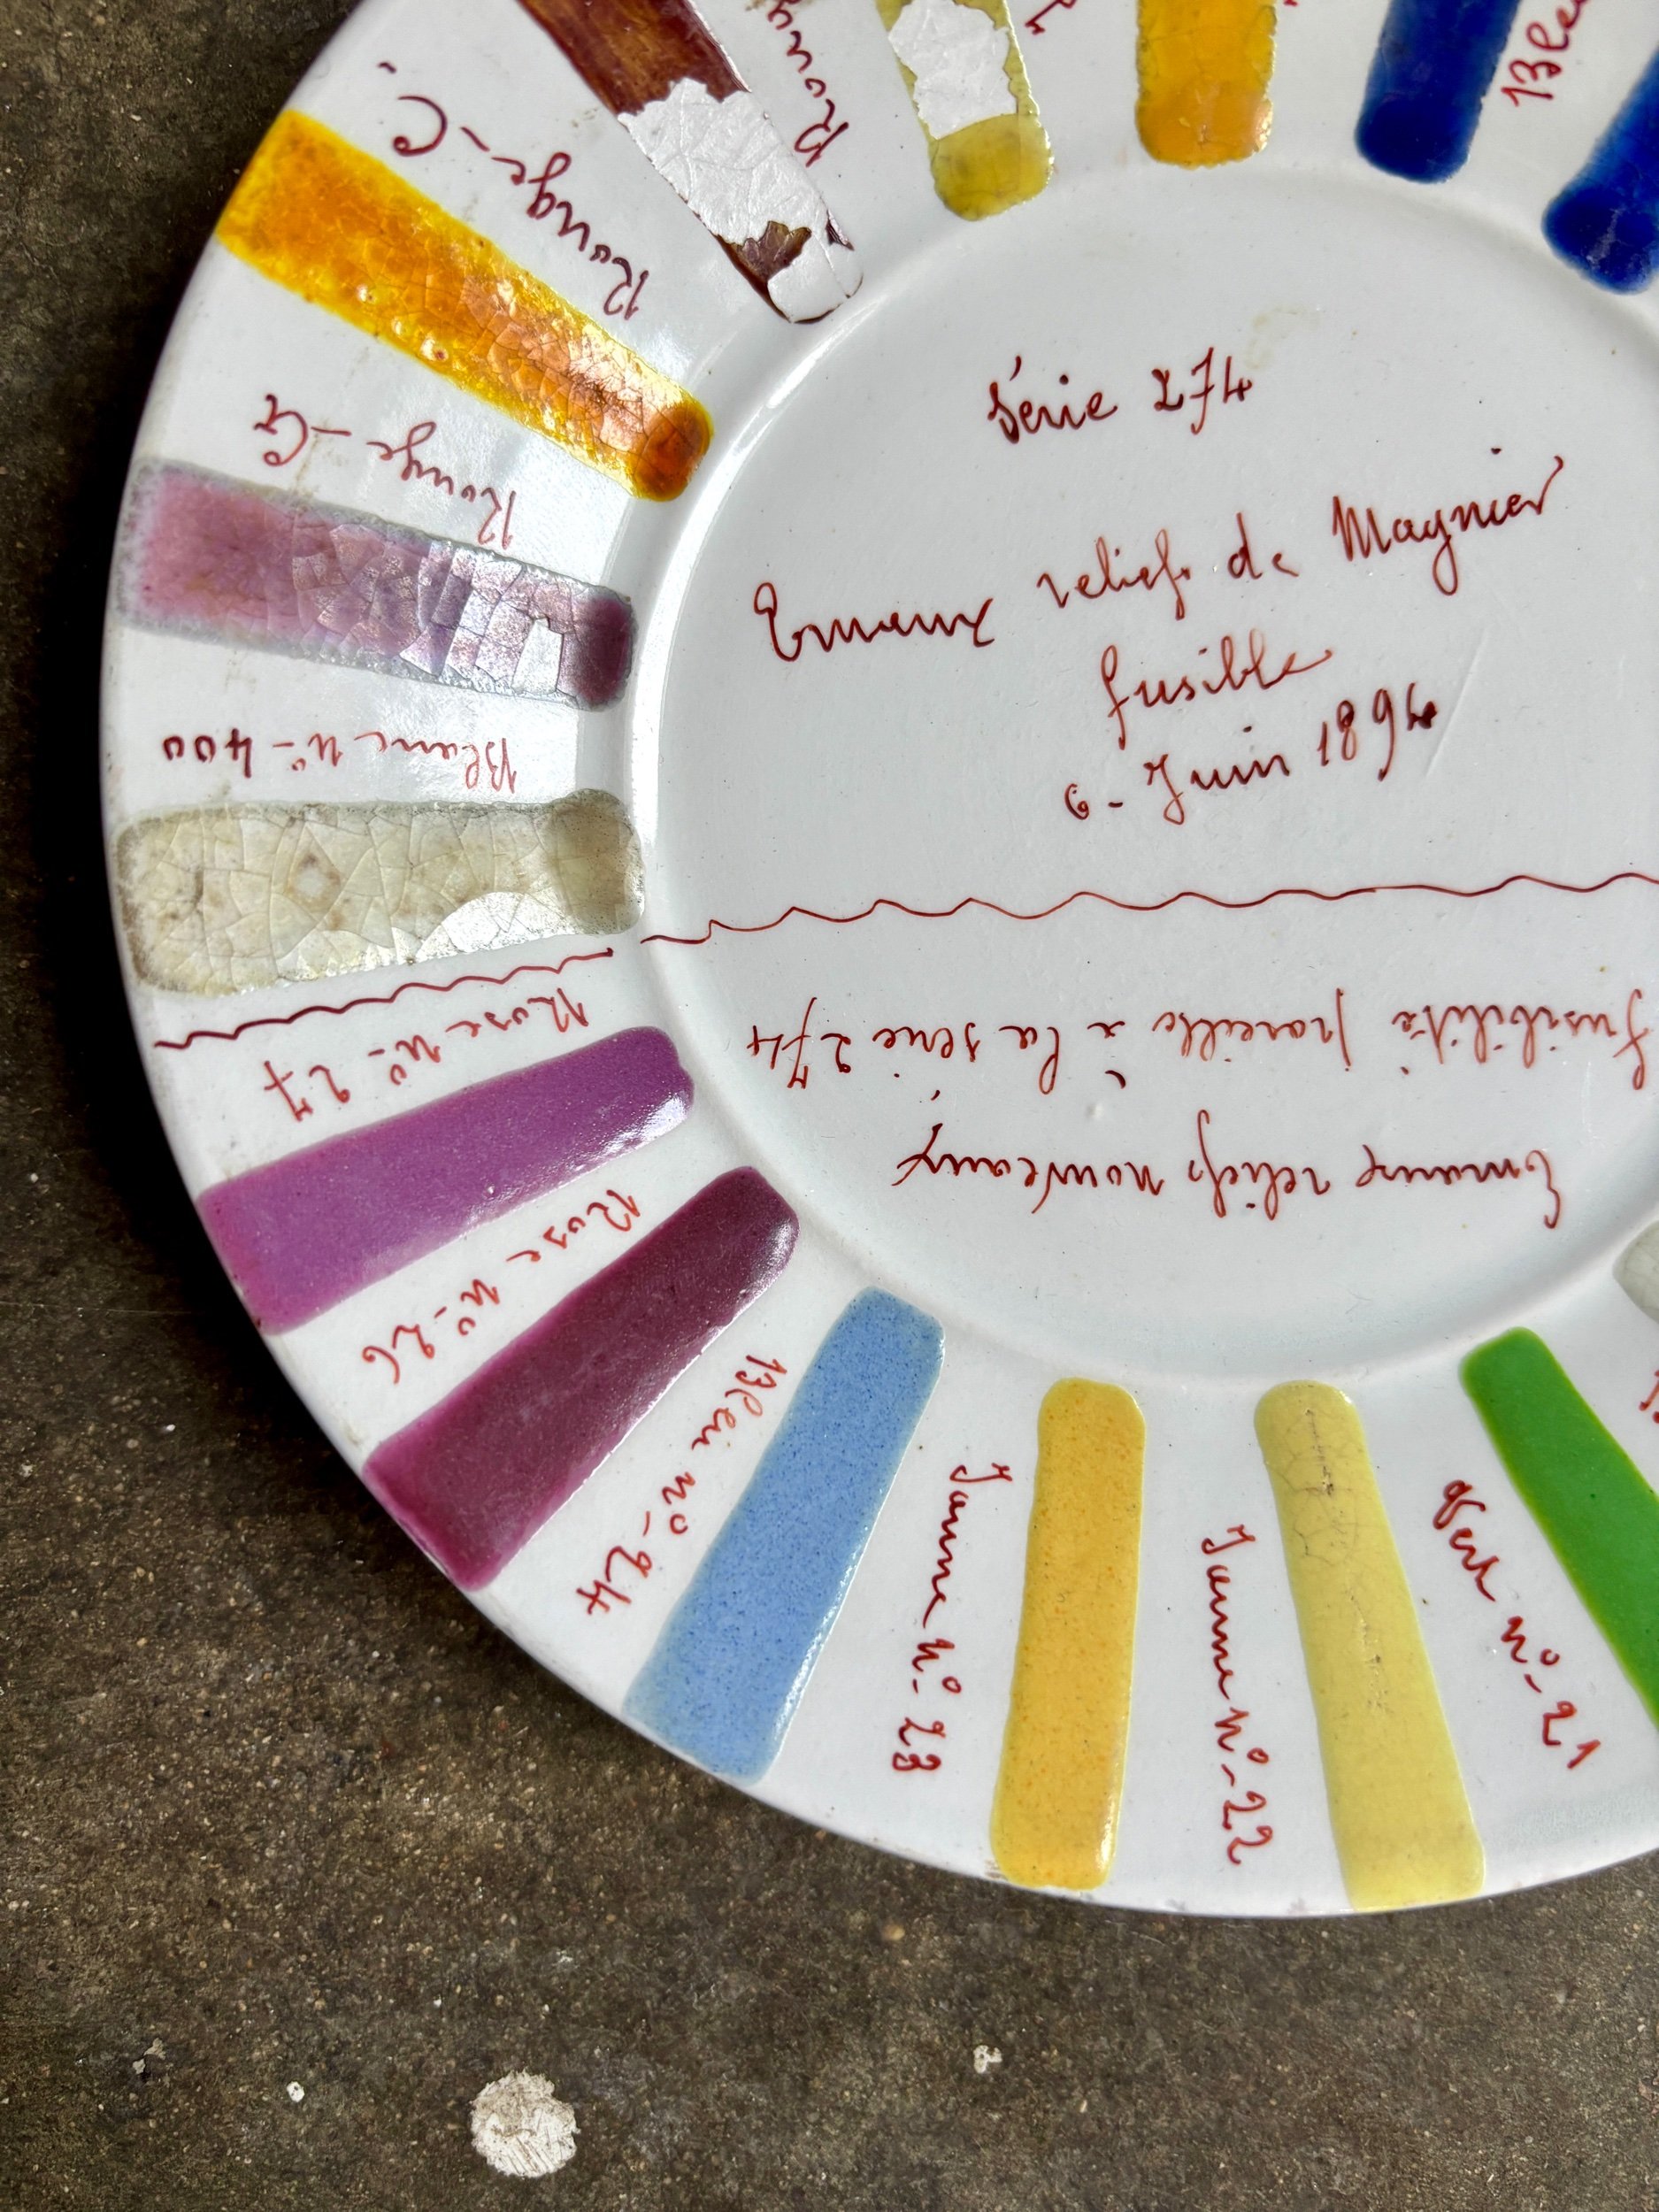 Série 274
Emaux reliefs de Magnier
fusible
6 - Juin 1894
Emaux reliefs nouveaux
fusibilité pareille à la serie 274
Rouge - C.
Rouge - G
Blanc N° - 400
Rose N° - 27
Rose N° - 26
Bleu N° - 24
Jaune N° - 23
Jaune N° - 22
Vert N° - 21